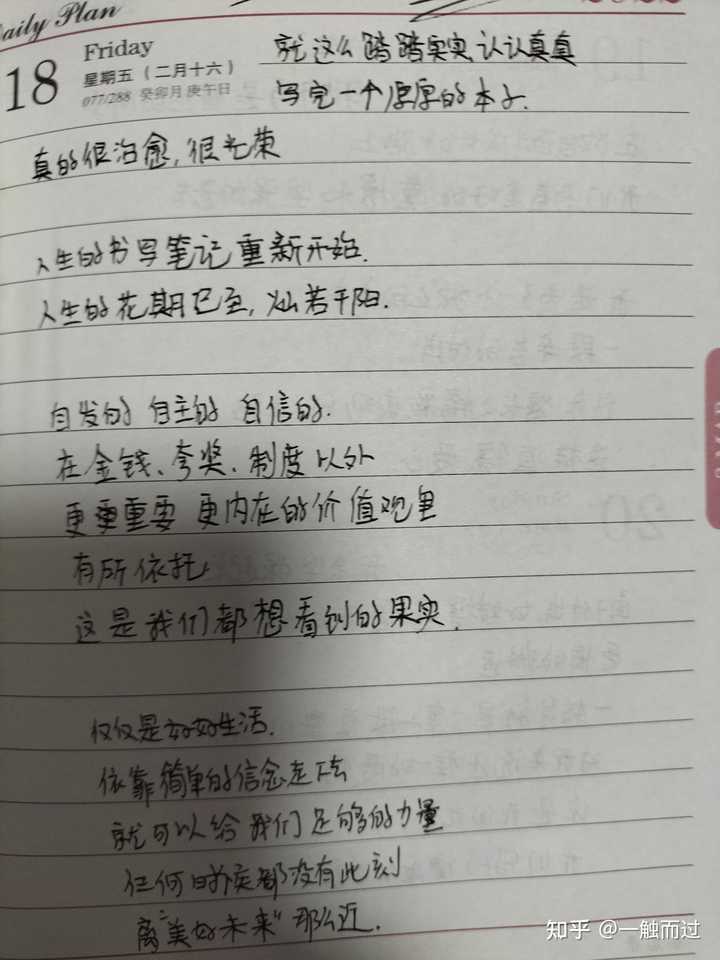 Daily Plan
18
Friday
星期五（二月十六）
077/288 癸卯月 庚午日
就这么踏踏实实,认认真真
写完一个厚厚的本子.
真的很治愈,很光荣
人生的书写笔记重新开始.
人生的花期已至,灿若千阳.
自发的 自主的 自信的.
在金钱、夸奖、制度以外
更重要 更内在的价值观里
有所依托
这是我们都想看到的果实.
仅仅是好好生活.
依靠简单的信念走下去
就可以给我们足够的力量
任何时候都没有此刻
离"美好未来"那么近.
知乎 @一触而过